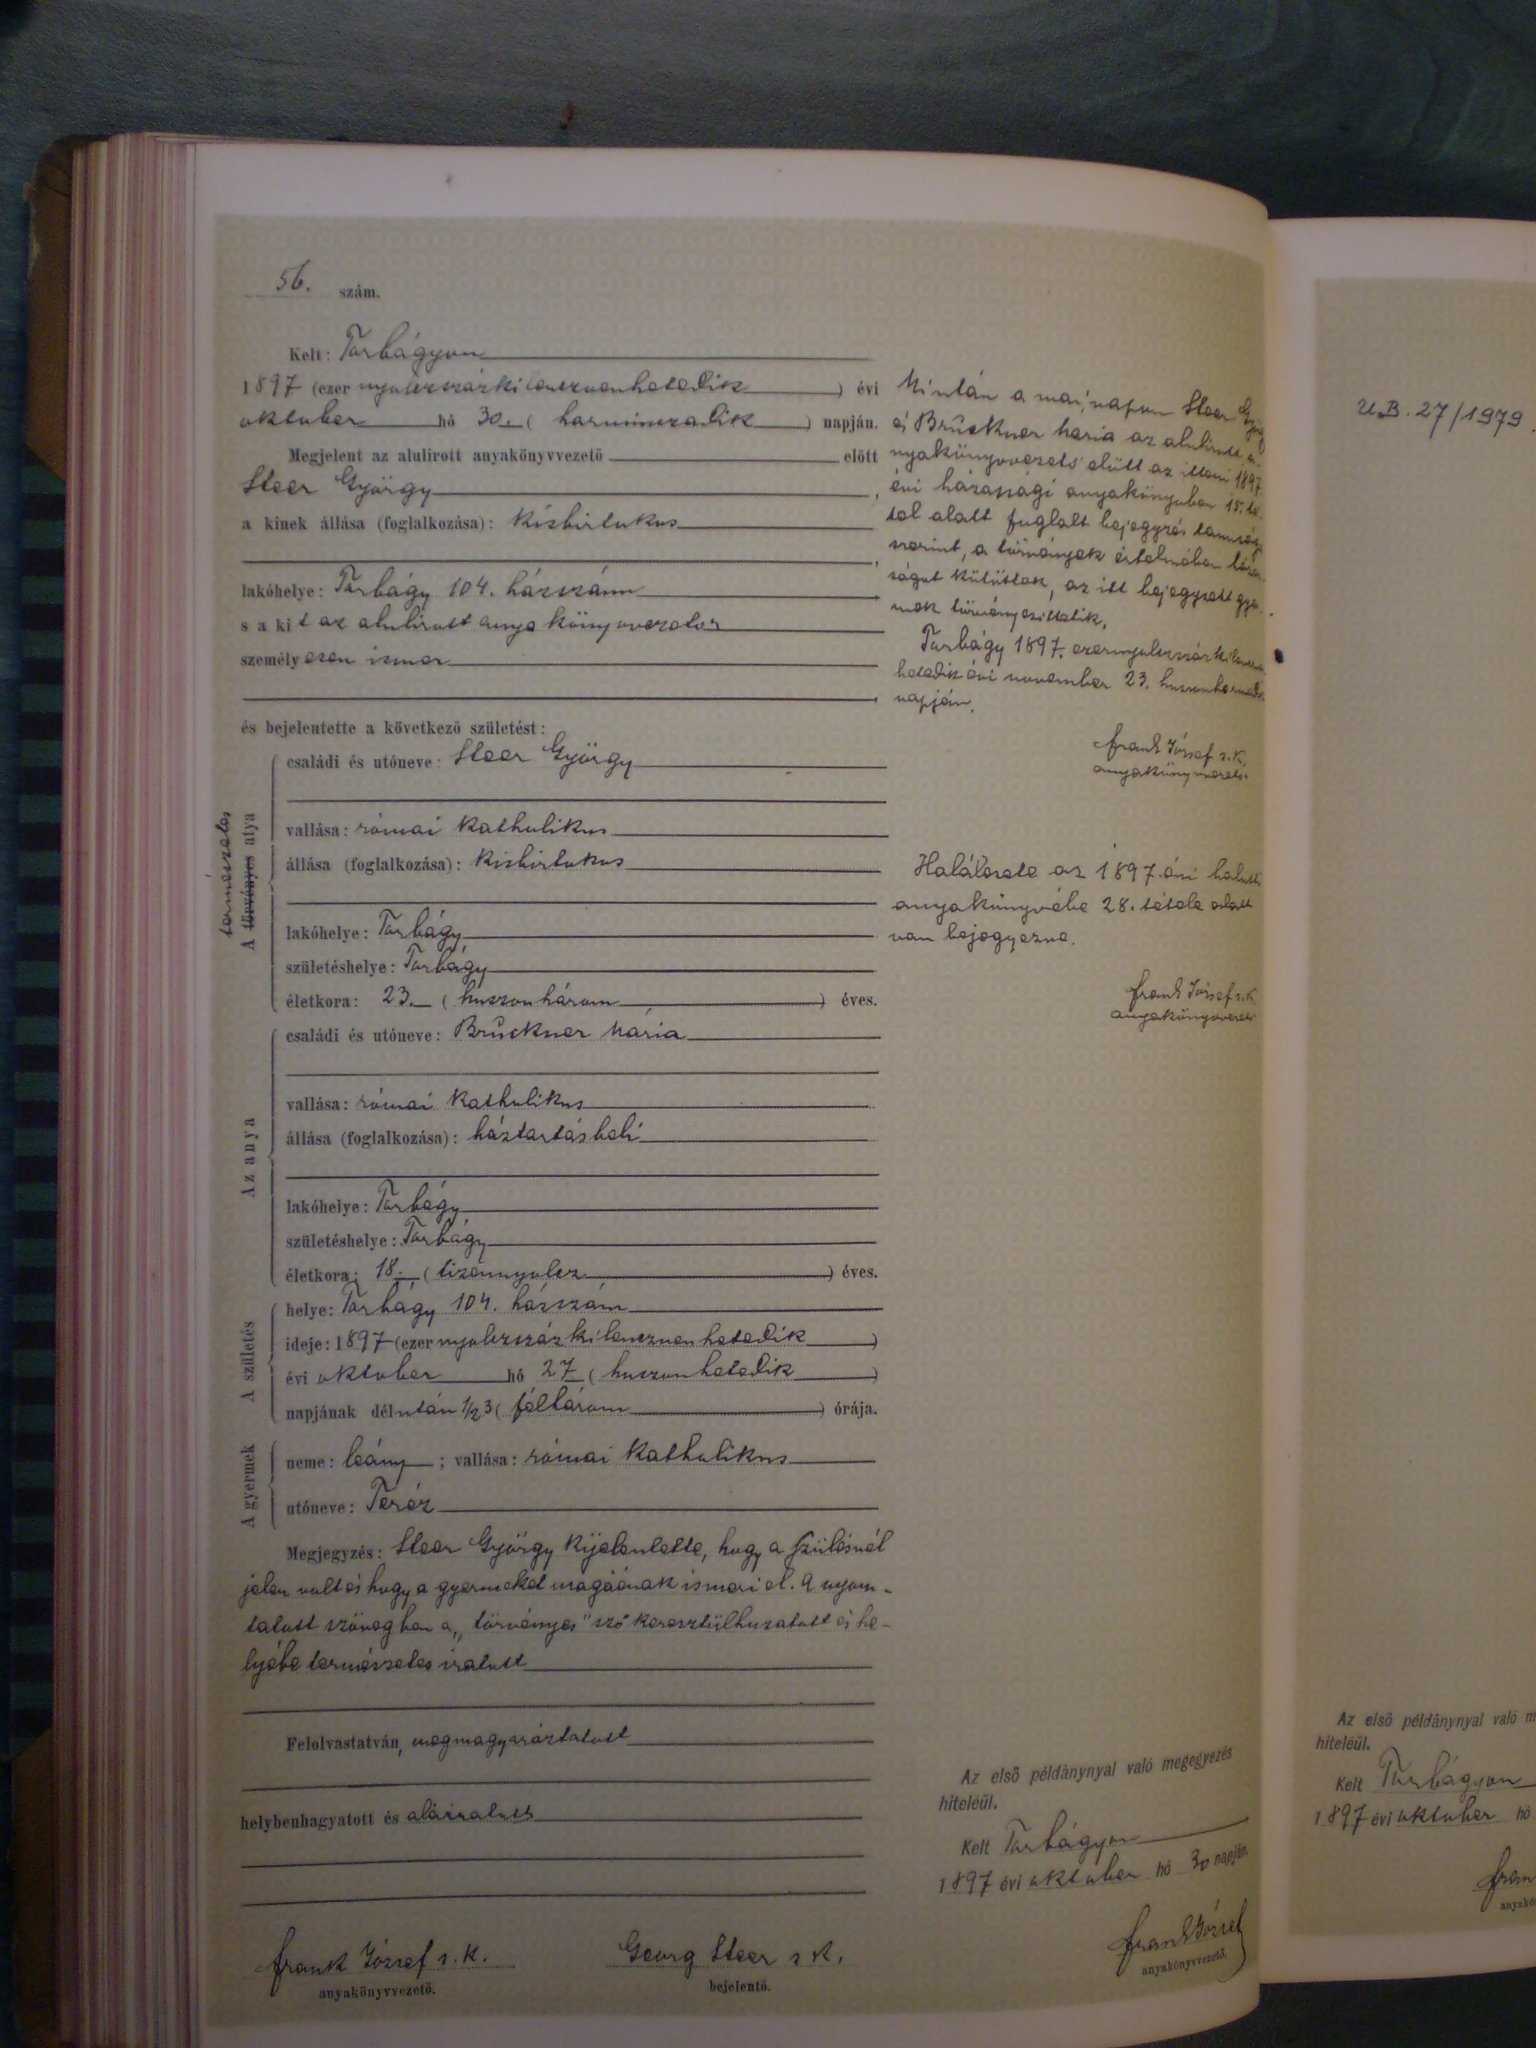 56. szám.
Kelt: Torbágyon
1897 (ezer nyolczszázkilenczvenhetedik ) évi
oktober hó 30. ( harminczadik ) napján.
Megjelent az alulirott anyakönyvvezető előtt
Steer György ,
a kinek állása (foglalkozása): kisbirtokos
,
lakóhelye: Torbágy 104. házszám
s a kit az alulirott anyakönyvvezető
személyesen ismer
,
és bejelentette a következő születést:
természetes
A törvényes atya
családi és utóneve: Steer György
vallása: római katholikus
állása (foglalkozása): kisbirtokos
lakóhelye: Torbágy
születéshelye: Torbágy
életkora: 23. ( huszonhárom ) éves.
Az anya
családi és utóneve: Brückner Mária
vallása: római katholikus
állása (foglalkozása): háztartásbeli
lakóhelye: Torbágy
születéshelye: Torbágy
életkora: 18. ( tizennyolcz ) éves.
A születés
helye: Torbágy 104. házszám
ideje: 1897 (ezer nyolczszázkilenczvenhetedik )
évi oktober hó 27 ( huszonhetedik )
napjának délután 1/2 3 ( félhárom ) órája.
A gyermek
neme: leány ; vallása: római katholikus
utóneve: Teréz
Megjegyzés: Steer György kijelentette, hogy a szülésnél
jelen volt és hogy a gyermeket magáénak ismeri el. A nyom-
tatott szövegben a „törvényes" szó keresztülhuzatott és he-
lyébe természetes iratott
Felolvastatván, megmagyaráztatott
helybenhagyatott és aláiratott
Frank József s. k.
anyakönyvvezető.
Georg Steer s k.
bejelentő.
Mintán a mai napon Steer György
és Brückner Mária az alulirott a-
nyakönyvvezető előtt az itteni 1897.
évi házassági anyakönyvben 15. té-
tel alatt foglalt bejegyzés tanusága
szerint, a törvények értelmében házas-
ságot kötöttek, az itt bejegyzett gyer-
mek törvényesittetik.
Torbágy 1897. ezernyolczszázkilenczven
hetedik évi november 23. huszonharmadik
napján.
Frank József s. k.
anyakönyvvezető.
Halálesete az 1897. évi halotti
anyakönyvébe 28. tétele alatt
van bejegyezve.
Frank József s. k.
anyakönyvvezető
Az első példánynyal való megegyezés
hiteléül.
Kelt Torbágyon
1897 évi oktober hó 30 napján.
Frank József
anyakönyvvezető.
U.B. 27/1979.
Az első példánynyal való m
hiteléül.
Kelt Torbágyon
1897 évi oktober hó
Fran
anyakö